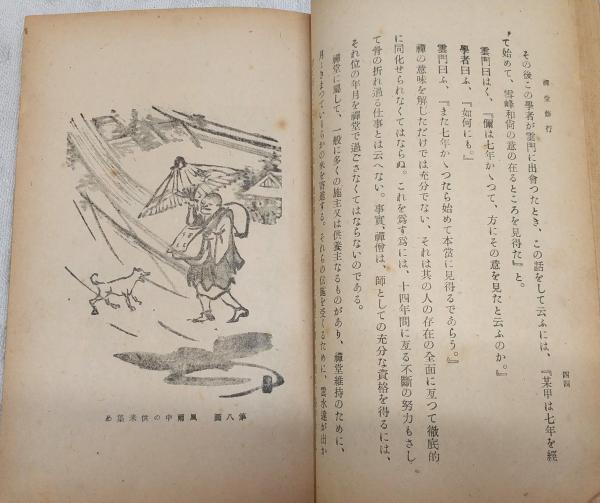 禪堂修行
四四
その後この學者が雲門に出會つたとき、この話をして云ふには、『某甲は七年を經
て始めて、雪峰和尙の意の在るところを見得た』と。
雲門曰はく、『儞は七年かゝつて、方にその意を見たと云ふのか。』
學者曰ふ、『如何にも。』
雲門曰ふ、『また七年かゝつたら始めて本當に見得るであらう。』
禪の意味を解しただけでは充分でない、それは其の人の存在の全面に亙つて徹底的
に同化せられなくてはならぬ。これを爲す爲には、十四年間に亙る不斷の努力もさし
て骨の折れ過る仕事とは云へない。事實、禪僧は、師としての充分な資格を得るには、
それ位の年月を禪堂で過ごさなくてはならないのである。
禪堂に屬して、一般に多くの施主又は供養主なるものがあり、禪堂維持のために、
月々きまつていくらかの米を寄進する。それらの信施を受くるために、雲水達が出か
第八圖 風雨中の供米集め